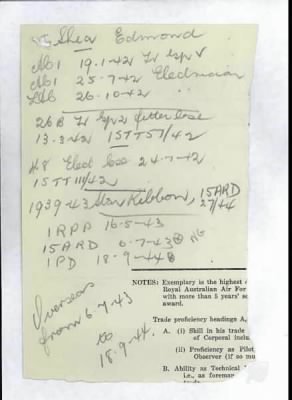 Shea Edmond
19.1.42 Tr Gp V
25-7-42 Electrician
LAC 26-10-42
26 B Gp 2 fitter
13-3-42 1STT57/42
48 Elect 24-7-42
1STT111/42
1939-43 Star Ribbon, 15ARD
27/44
1RPP 16-5-43
15ARD 6-7-43 NG
1PD 18-9-44
Overseas
from 6-7-43
to
18.9.44.
NOTES: Exemplary is the highest
Royal Australian Air For
with more than 5 years' se
award.
Trade proficiency headings A,
A. (i) Skill in his trade
of Corporal inclu
(ii) Proficiency as Pilot
Observer (if so mu
B. Ability as Technical
i.e., as foreman